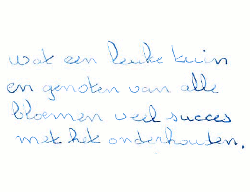 wat een leuke tuin
en genoten van alle
bloemen veel succes
met het onderhouden.